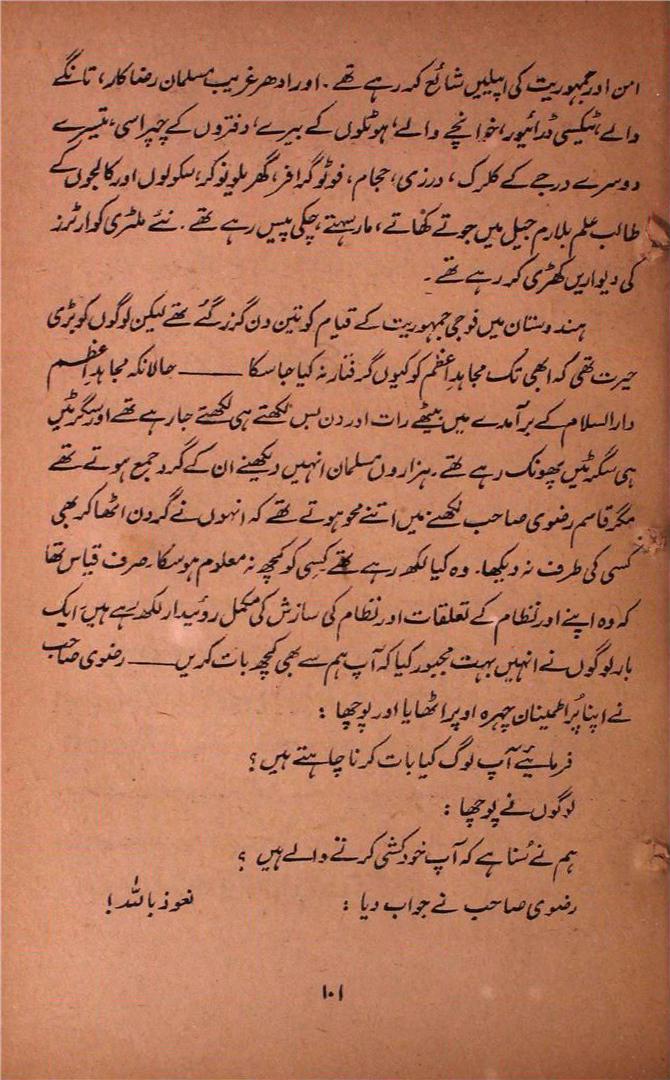 امن اور جمہوریت کی اپیلیں شائع کر رہے تھے ۔ اور ادھر غریب مسلمان رضاکار، تانگے
والے، ٹیکسی ڈرائیور، خوانچے والے، ہوٹلوں کے بیرے، دفتروں کے چپراسی، تیسرے
دوسرے درجے کے کلرک، درزی، حجام، فوٹوگرافر، گھریلو نوکر، سکولوں اور کالجوں کے
طالب علم بلارم جیل میں جوتے کھاتے، مار سہتے، چکی پیس رہے تھے ۔ نئے ملٹری کوارٹرز
کی دیواریں کھڑی کر رہے تھے ۔
ہندوستان میں فوجی جمہوریت کے قیام کو تین دن گزر گئے تھے لیکن لوگوں کو بڑی
حیرت تھی کہ ابھی تک مجاہدِ اعظم کو کیوں گرفتار نہ کیا جا سکا ——— حالانکہ مجاہدِ اعظم
دارالسلام کے برآمدے میں بیٹھے رات اور دن بس لکھتے ہی لکھتے جا رہے تھے اور سگرٹیں
ہی سگرٹیں پھونک رہے تھے ۔ ہزاروں مسلمان انہیں دیکھنے ان کے گرد جمع ہوتے تھے
مگر قاسم رضوی صاحب لکھنے میں اتنے محو ہوتے تھے کہ انہوں نے گردن اٹھا کر بھی
کسی کی طرف نہ دیکھا۔ وہ کیا لکھ رہے تھے کسی کو کچھ نہ معلوم ہو سکا۔ صرف قیاس تھا
کہ وہ اپنے اور نظام کے تعلقات اور نظام کی سازش کی مکمل روئیداد لکھ رہے ہیں۔ ایک
بار لوگوں نے انہیں بہت مجبور کیا کہ آپ ہم سے بھی کچھ بات کریں ——— رضوی صاحب
نے اپنا پُر اطمینان چہرہ اوپر اٹھایا اور پوچھا :
فرمائیے آپ لوگ کیا بات کرنا چاہتے ہیں ؟
لوگوں نے پوچھا :
ہم نے سُنا ہے کہ آپ خودکشی کرنے والے ہیں ؟
رضوی صاحب نے جواب دیا : نعوذ باللہ !
۱۰۱